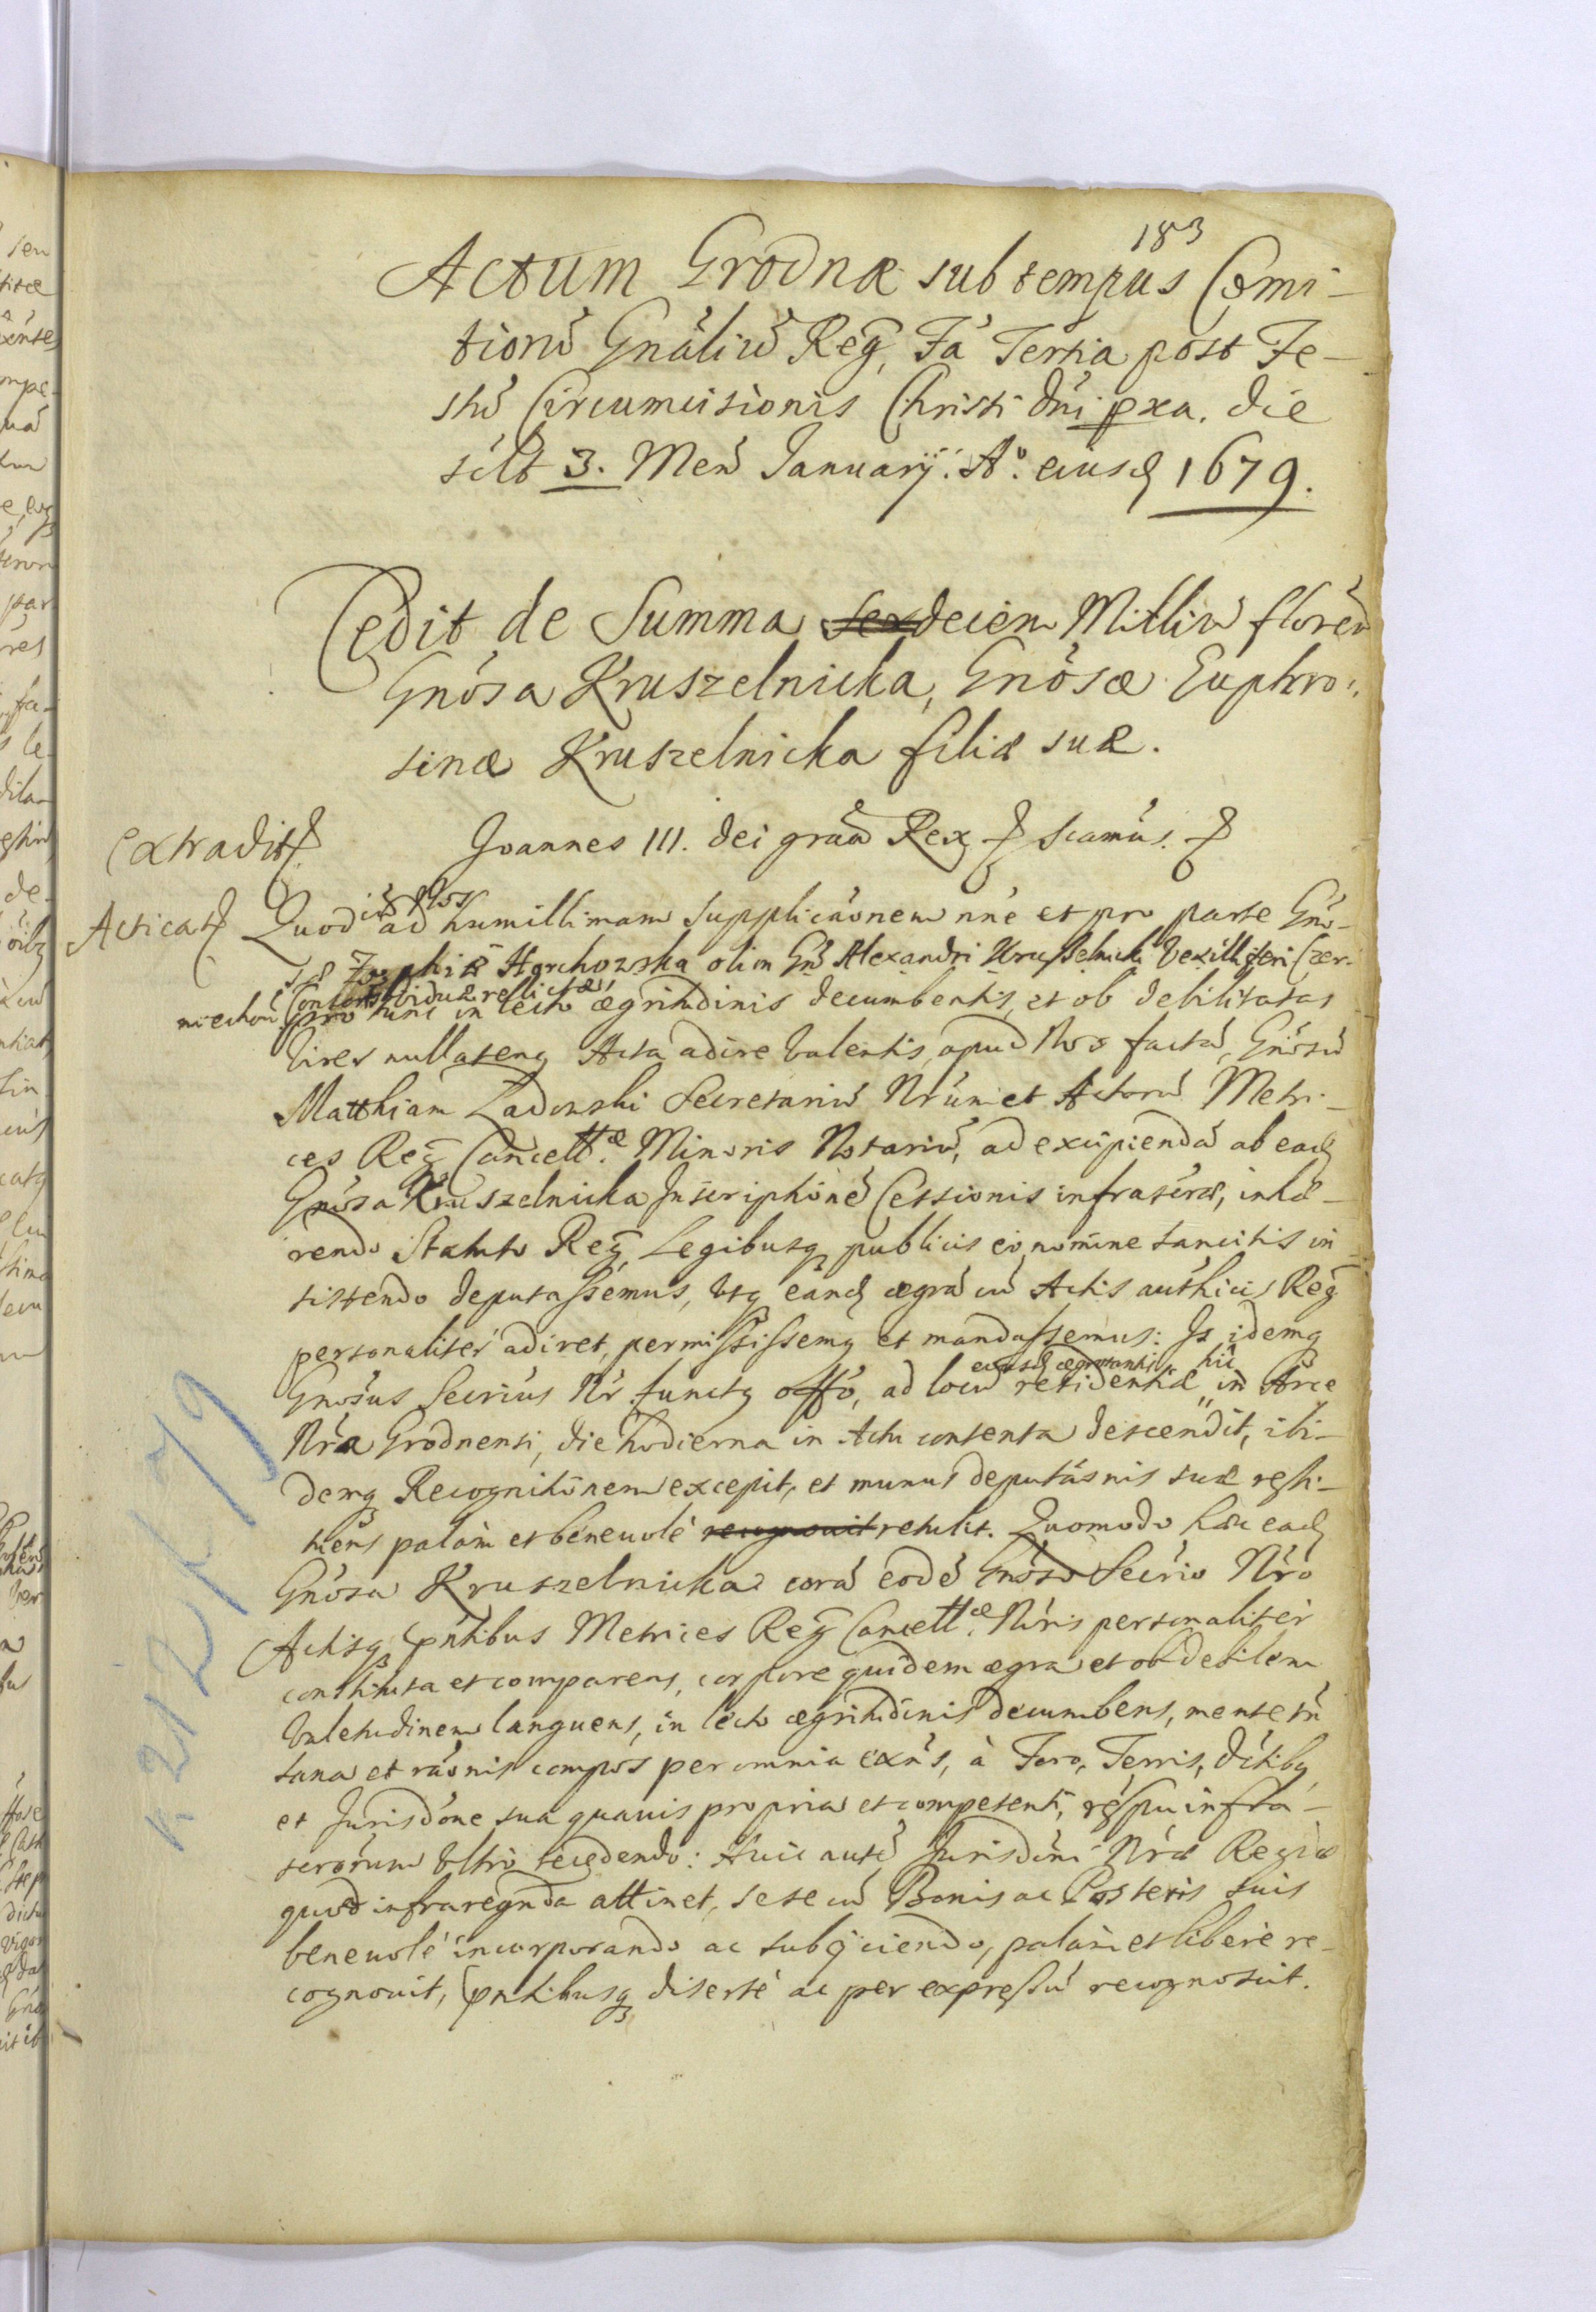 183
Actum Grodnæ sub tempus Comi-
tiorũ Gnãliũ Reg, Fã Tertia post Fe-
stũ Circumcisionis Christi dñi pxa. die
scilt 3. Mens Januarij. Aº. eiusd 1679.
Cedit de Summa sexdecem Milliũ floren
Gnõsa Kruszelnicka, Gnõsæ Euphro-
sinæ Kruszelnicka filiæ suæ.
Extradit
Joannes III. Dei grãa Rex scamus.
Acticat
Quod cũ Nos ad humillimam supplicãonem nñe et pro parte Gnõ-
sæ Zophiæ Horchowska olim Gñi Alexandri Kruszelnicki Vexilliferi Czer-
niechou Consortis viduæ relictæ
pro tunc in lecto ægritudinis decumbentis, et ob debilitatas
vires nullatenq Acta adire valentis, apud Nos factã, Gnõsũ
Matthiam Ladowski Secretariũ Nrũm et Actorũ Metri-
ces Reg Cancellæ Minoris Notariũ, ad excipiendã ab ead
Gnõsa Kruszelnicka Inscriptiõne Cessionis infrascræ, inhæ-
rendo Statuto Reg Legibusq publicis eo nomine sancitis in-
sistendo deputassemus, utq eand ægrã cũ Actis authicis Reg
personaliter adiret, permisissemq et mandassemus: Is idemq
Gnosus Secrius Nr. functq offo, ad locũ residentiæ eiusd ægrotantis hic in Arce
Nra Grodnensi, die hodierna in Actu contenta descendit, ibi-
demq Recognitiõnem excepit, et munus deputãonis suæ resti-
tuens palàm et beneuolè recognouit retulit. Quomodo hæc ead
Gnõsa Kruszelnicka corã eodẽ Gnõso Secrio Nro
Actisq pntibus Metrices Reg Cancellæ Nris personaliter
constituta et comparens, corpore quidem ægra et ob debilem
valetudinem languens, in lecto ægritudinis decumbens, mente tñ
sana et rãonis compos per omnia exñs, à Foro, Terris, Dctibq
et Jurisdõne sua quauis propria et competenti, respu infra-
scrorum ultro recedendo: Huic autẽ Jurisdõni Nræ Regiæ
quod infraregnda attinet, sese cũ Bonis ac Posteris suis
beneuolè incorporando ac subijciendo, palàm et liberè re-
cognouit, pntibusq disertè ac per expressũ recognoscit.